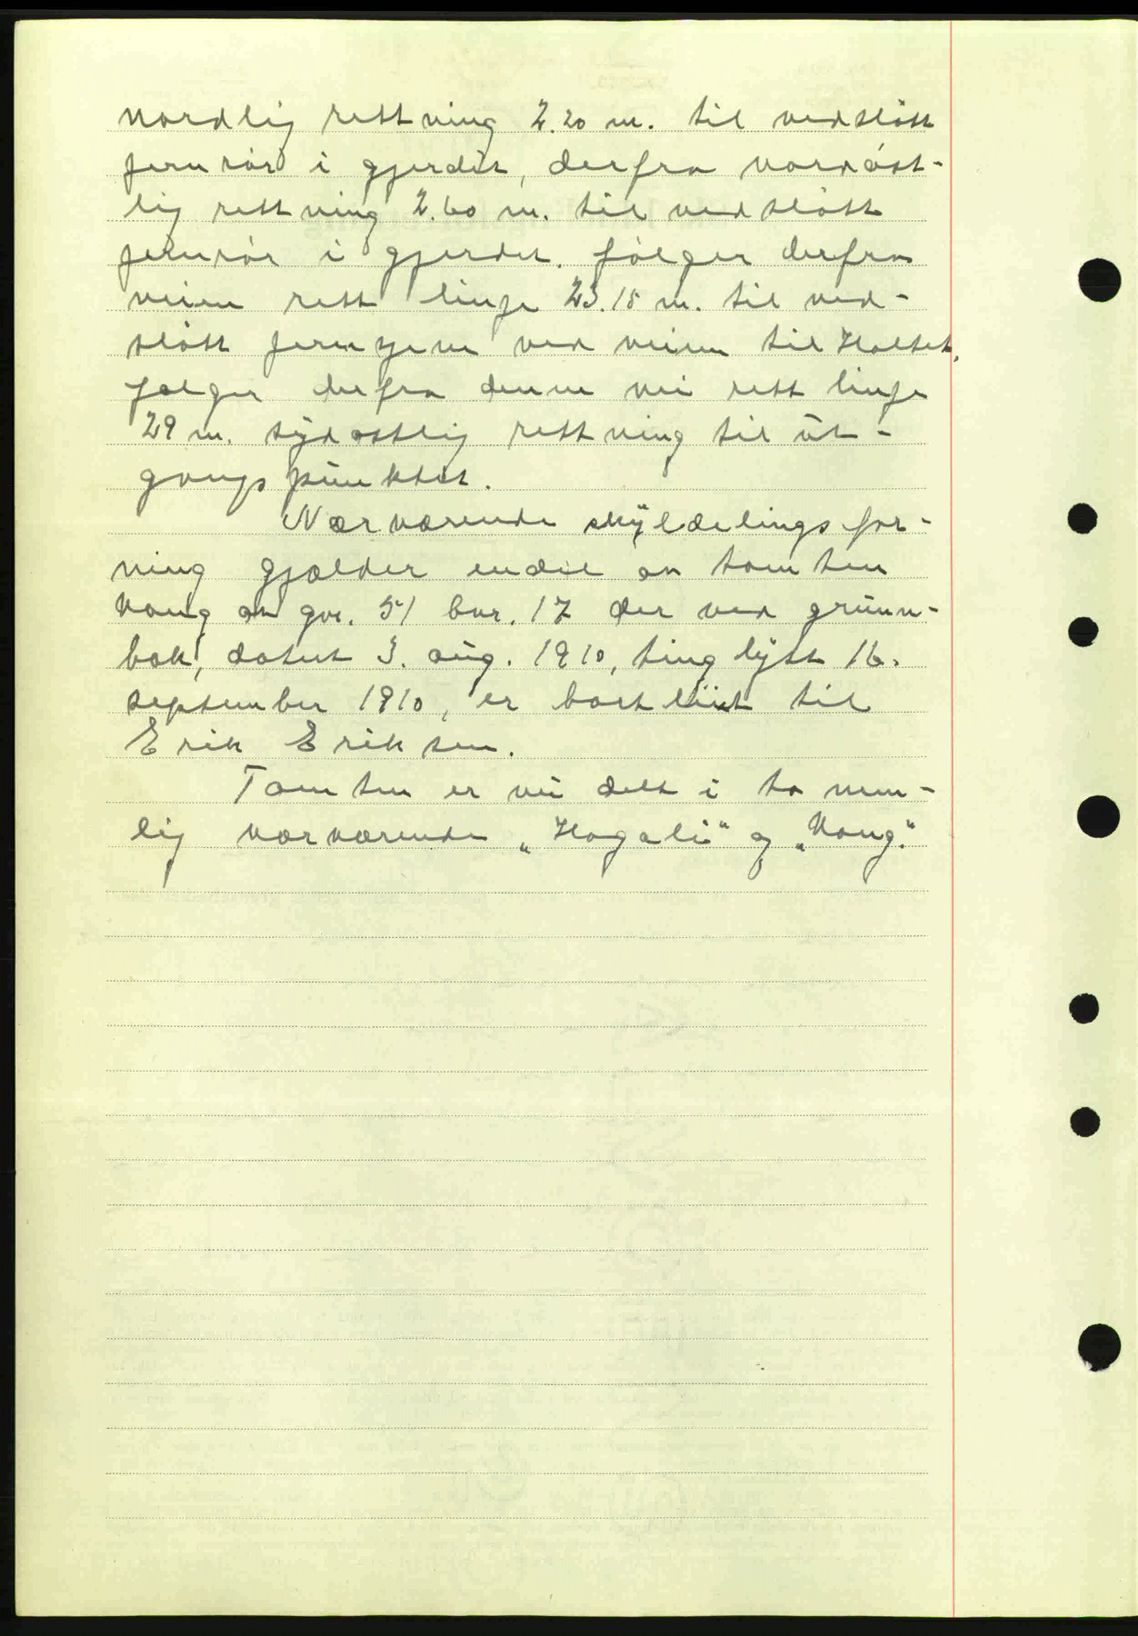 nordlig rettning 2.20 m. til nedslått
jernrör i gjerdet, derfra nordöst-
lig rettning 2.60 m. til nedslått
jernrör i gjerdet, fölger derfra
veien rett linje 23.15 m. til ned-
slått jern ved veien til Holtet,
følger derfra denne vei rett linje
29 m. sydostlig rettning til ut-
gangspunktet.
Nærværende skyldelingsfor-
ning gjælder endel av tomten
Vang av gnr. 51 bnr. 17 der ved grunn-
bok, datert 3. aug. 1910, tinglyst 16.
september 1910, er bort til
Erik Eriksen.
Tomten er nu delt i to nem-
lig nærværende „Hagali" og „Vang".